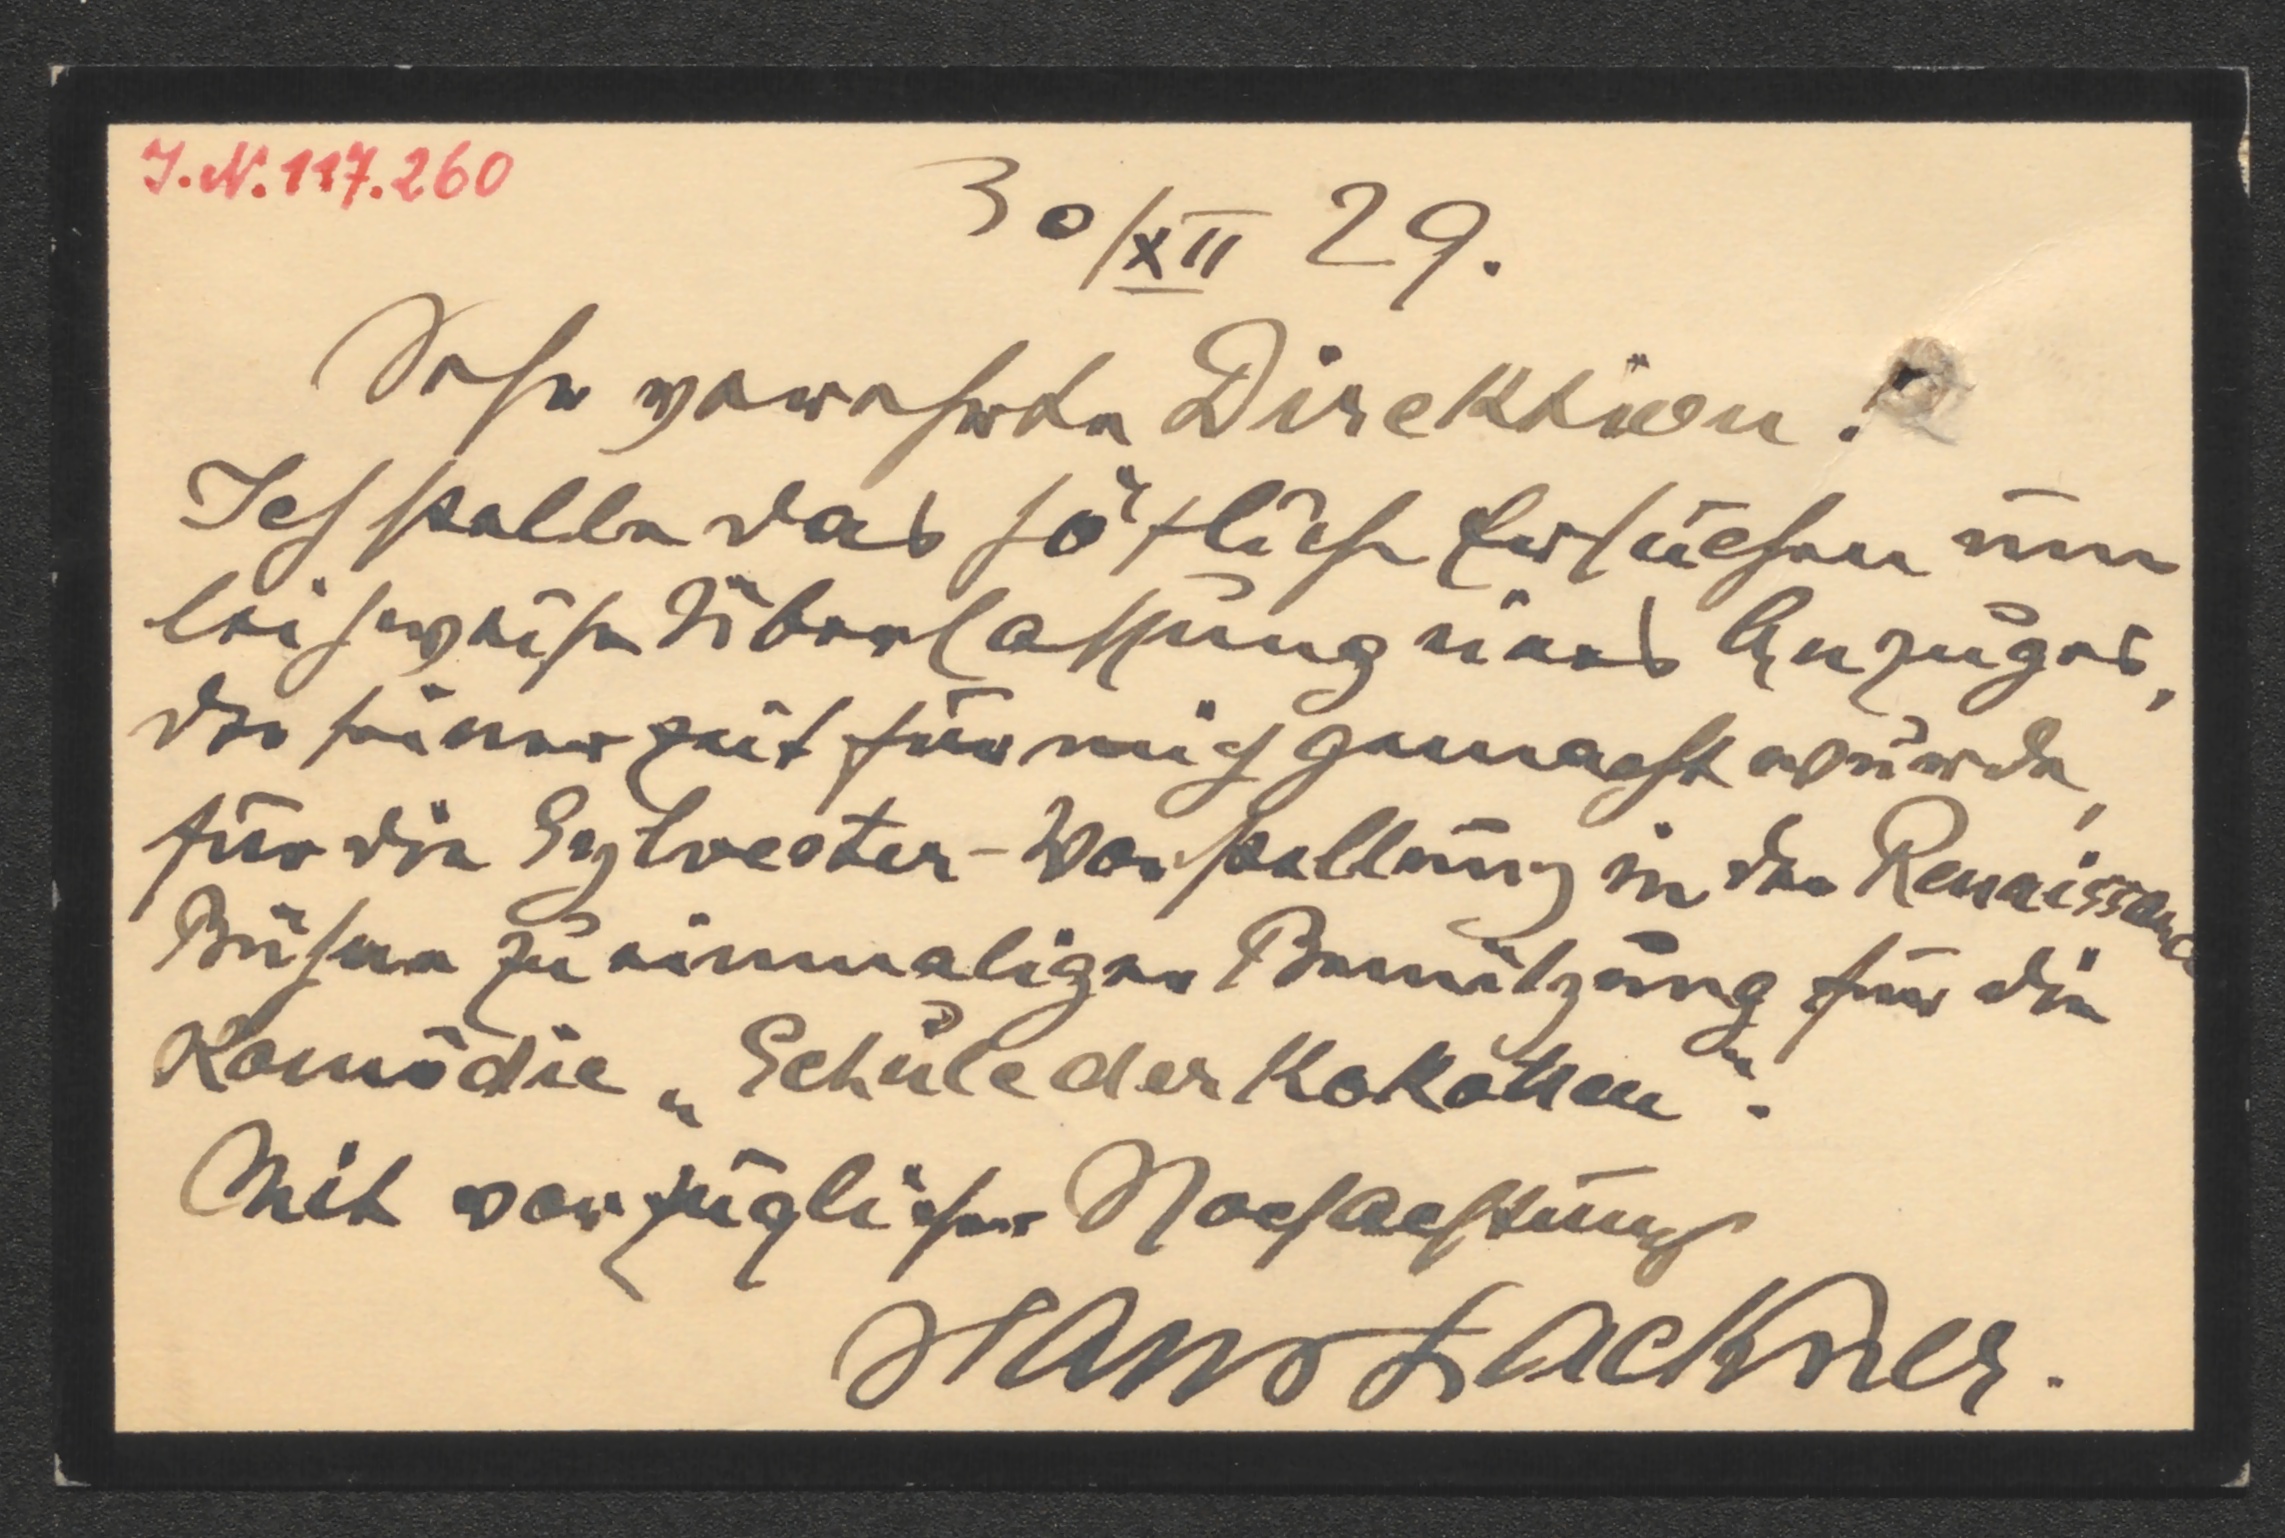 I.N. 117.260
30/XII 29.
Sehr verehrte Direktion!
Ich stelle das höfliche Ersuchen um
leihweise Überlassung eines Anzuges,
der seinerzeit für mich gemacht wurde,
für die Sylvester-Vorstellung in der Renaissance
Bühne zu einmaliger Benützung für die
Komödie „Schule der Kokotten".
Mit vorzüglicher Hochachtung
Hans Lackner.